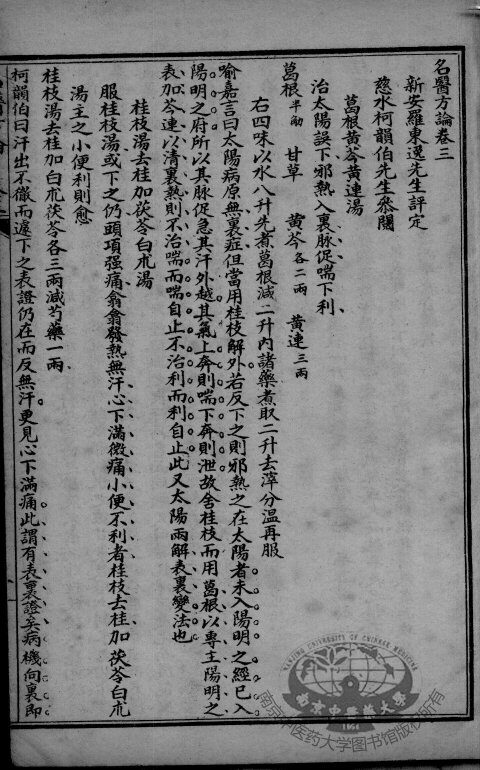 名醫方論卷三
新安羅東逸先生評定
慈水柯韻伯先生叅閱
葛根黃芩黃連湯
治太陽誤下邪熱入裏脉促喘下利
葛根半觔 甘草 黃芩各二兩 黃連三兩
右四味以水八升先煮葛根減二升內諸藥煮取二升去滓分温再服
喻嘉言曰太陽病原無裏症但當用桂枝解外若反下之則邪熱之在太陽者未入陽明之經已入
陽明之府所以其脉促急其汗外越其氣上奔則喘下奔則泄故舍桂枝而用葛根以專主陽明之
表加芩連以清裏熱則不治喘而喘自止不治利而利自止此又太陽兩解表裏變法也
桂枝湯去桂加茯苓白朮湯
服桂枝湯或下之仍頭項强痛翕翕發熱無汗心下滿微痛小便不利者桂枝去桂加茯苓白朮
湯主之小便利則愈
桂枝湯去桂加白朮茯苓各三兩減芍藥一兩
柯韻伯曰汗出不徹而遽下之表證仍在而反無汗更見心下滿痛此謂有表裏證矣病機向裏即
NANJING UNIVERSITY OF CHINESE MEDICINE
南京中醫藥大學
1954
南京中医药大学图书馆版权所有